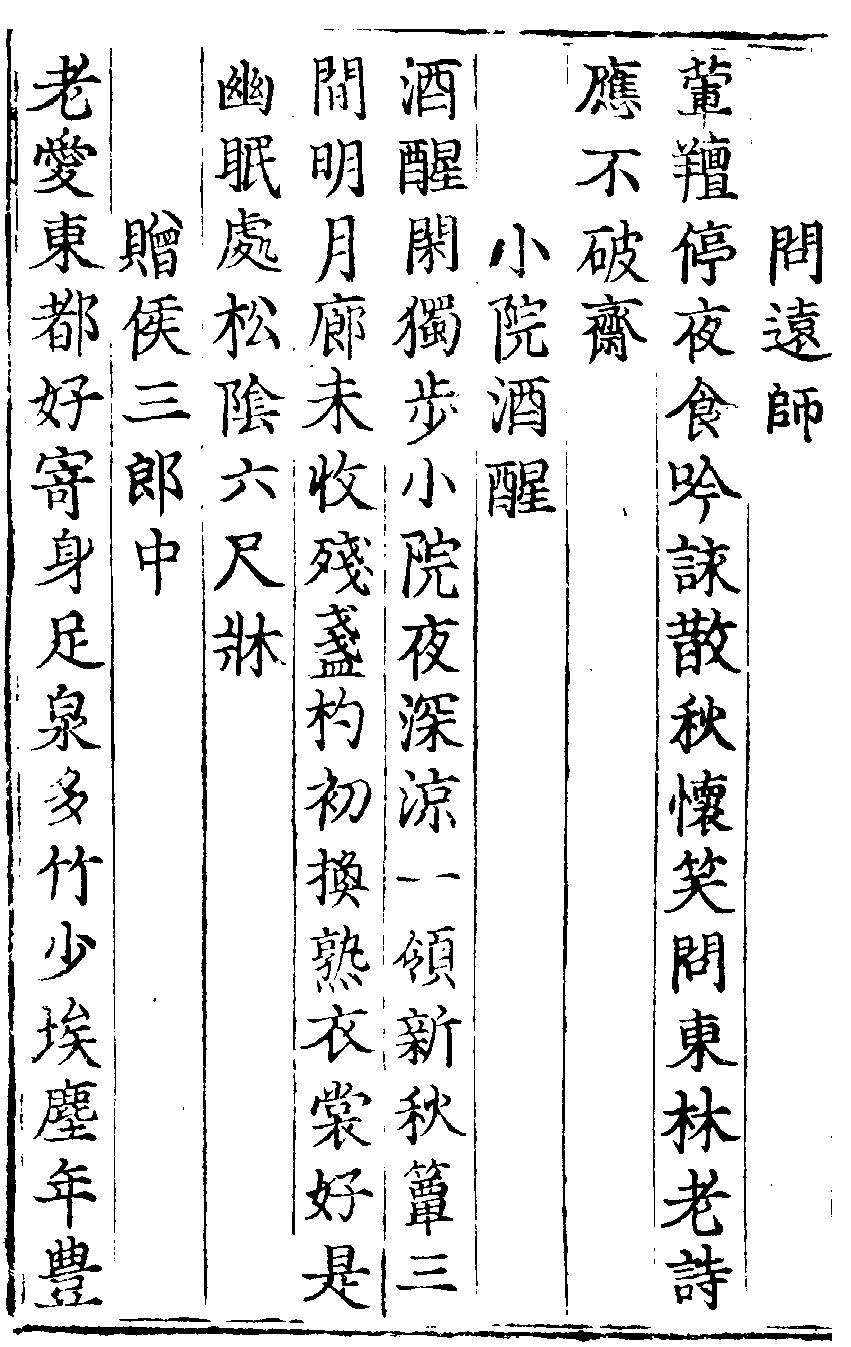 問遠師
葷羶停夜食吟詠散秋懷笑問東林老詩
應不破齋
小院酒醒
酒醒閑獨步小院夜深涼一領新秋簟三
間明月廊未收殘盞杓初換熟衣裳好是
幽眠處松陰六尺牀
贈侯三郎中
老愛東都好寄身足泉多竹少埃塵年豐